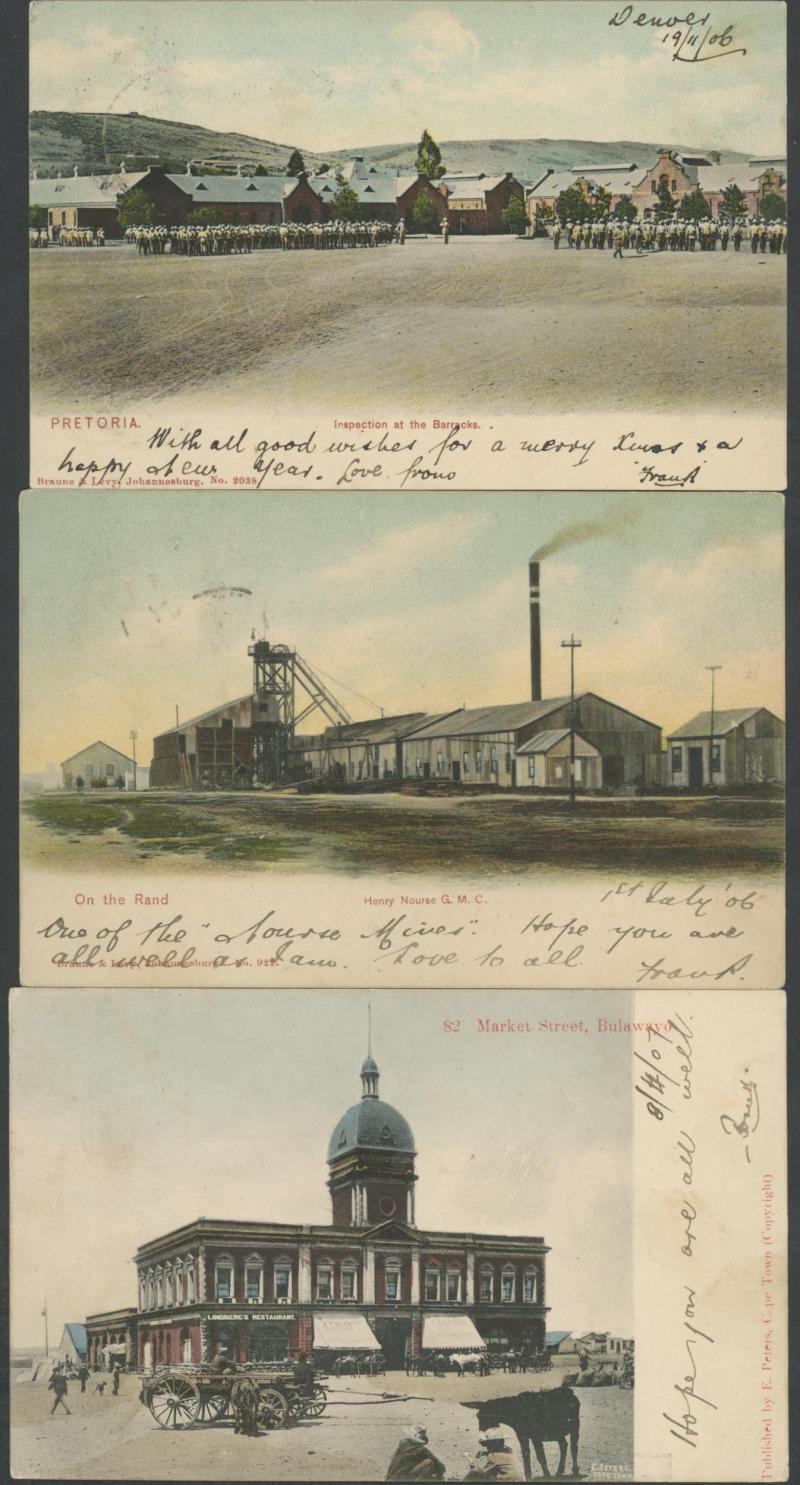 Denver
19/11/06
PRETORIA.
Inspection at the Barracks.
With all good wishes for a merry Xmas & a
happy New Year. Love from Frank
Braune & Levy, Johannesburg. No. 2038
On the Rand
Henry Nourse G. M. C.
1st July '06
One of the "Nourse Mines". Hope you are
all well as I am. Love to all
Frank.
Braune & Levy, Johannesburg. No. 922.
82 Market Street, Bulawayo
LINDBERG'S RESTAURANT.
8/4/07
Hope you are all well.
– Frank.
Published by E. Peters, Cape Town (Copyright)
E. PETERS,
CAPE TOWN